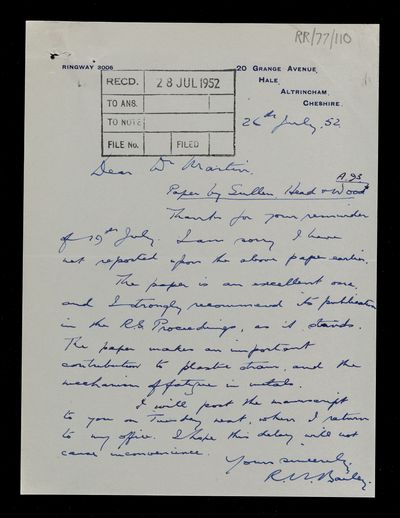 RR/77/110
RINGWAY 3006
20 GRANGE AVENUE,
HALE,
ALTRINCHAM,
CHESHIRE.
RECD. 28 JUL 1952
TO ANS.
TO NOTE
FILE No. FILED
26th July, 52.
Dear Dr Martin,
A.93
Paper by Gullen, Head & Wood
Thanks for your reminder
of 19th July. I am sorry I have
not reported upon the above paper earlier.
The paper is an excellent one,
and I strongly recommend its publication
in the RS Proceedings, as it stands.
The paper makes an important
contribution to plastic strain, and the
mechanism of fatigue in metals.
I will post the manuscript
to you on Tuesday next, when I return
to my office. I hope this delay will not
cause inconvenience.
Yours sincerely,
R.W. Bailey.